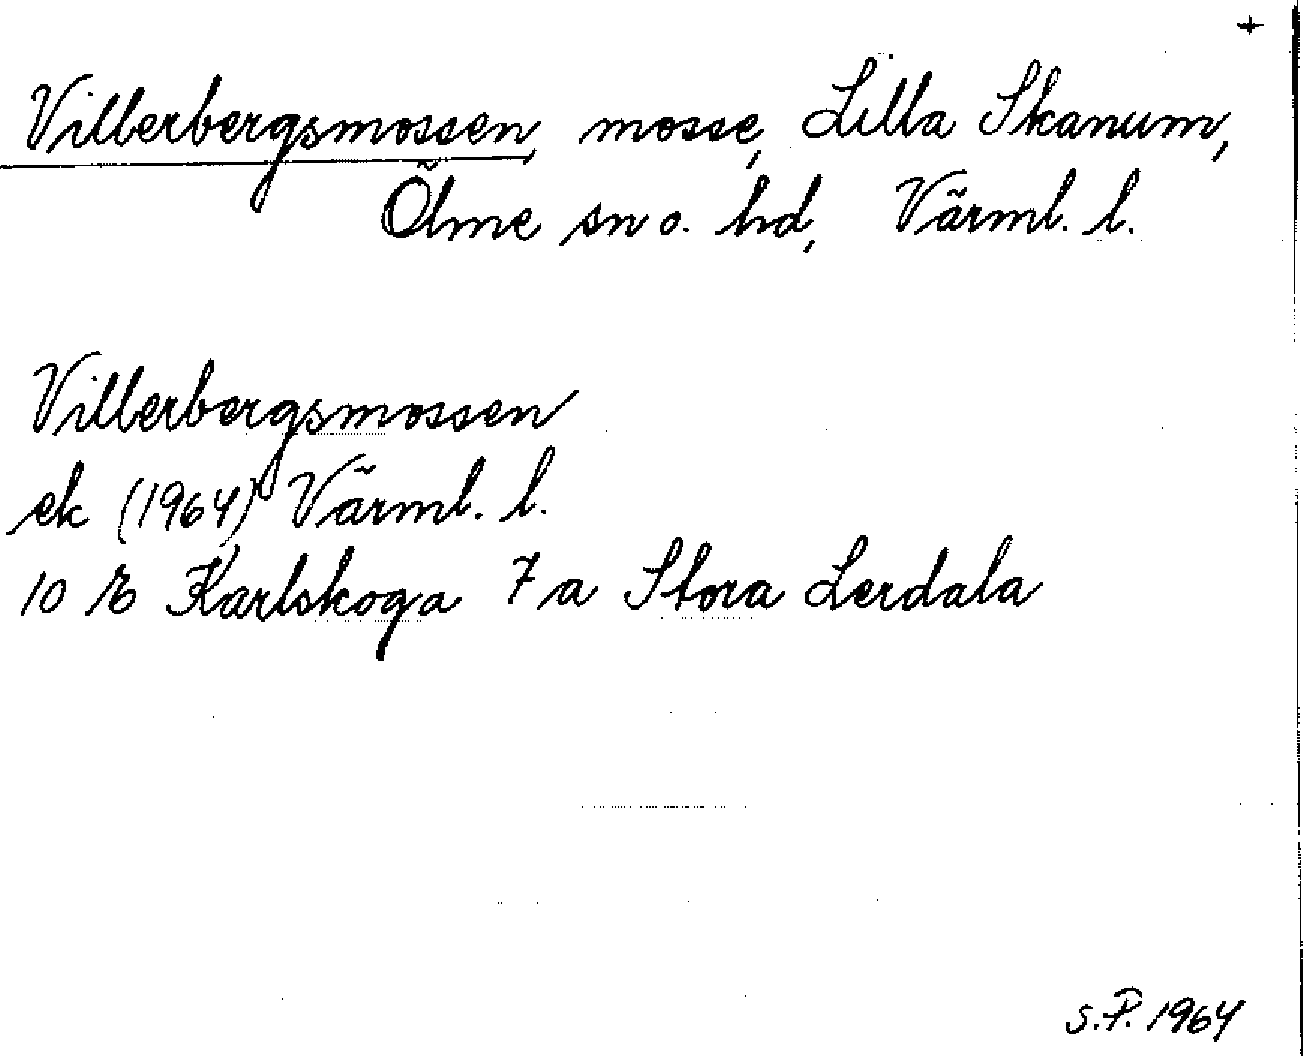 +
Villerbergsmossen, mosse, Lilla Skanum,
Ölme sn o. hd, Värml. l.
Villerbergsmossen
ek (1964) Värml. l.
10 E Karlskoga 7 a Stora Lerdala
S.P. 1964